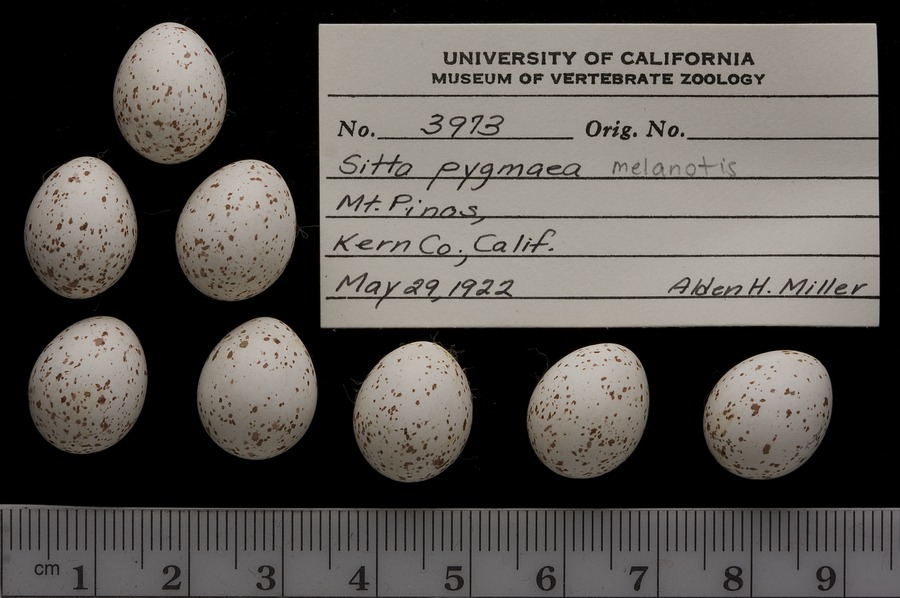 UNIVERSITY OF CALIFORNIA
MUSEUM OF VERTEBRATE ZOOLOGY
No. 3973 Orig. No.
Sitta pygmaea melanotis
Mt. Pinos,
Kern Co., Calif.
May 29, 1922 Alden H. Miller
cm 1 2 3 4 5 6 7 8 9